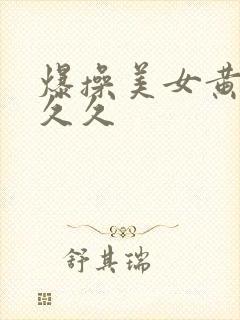 爆操美女黄
久久
舒其瑞